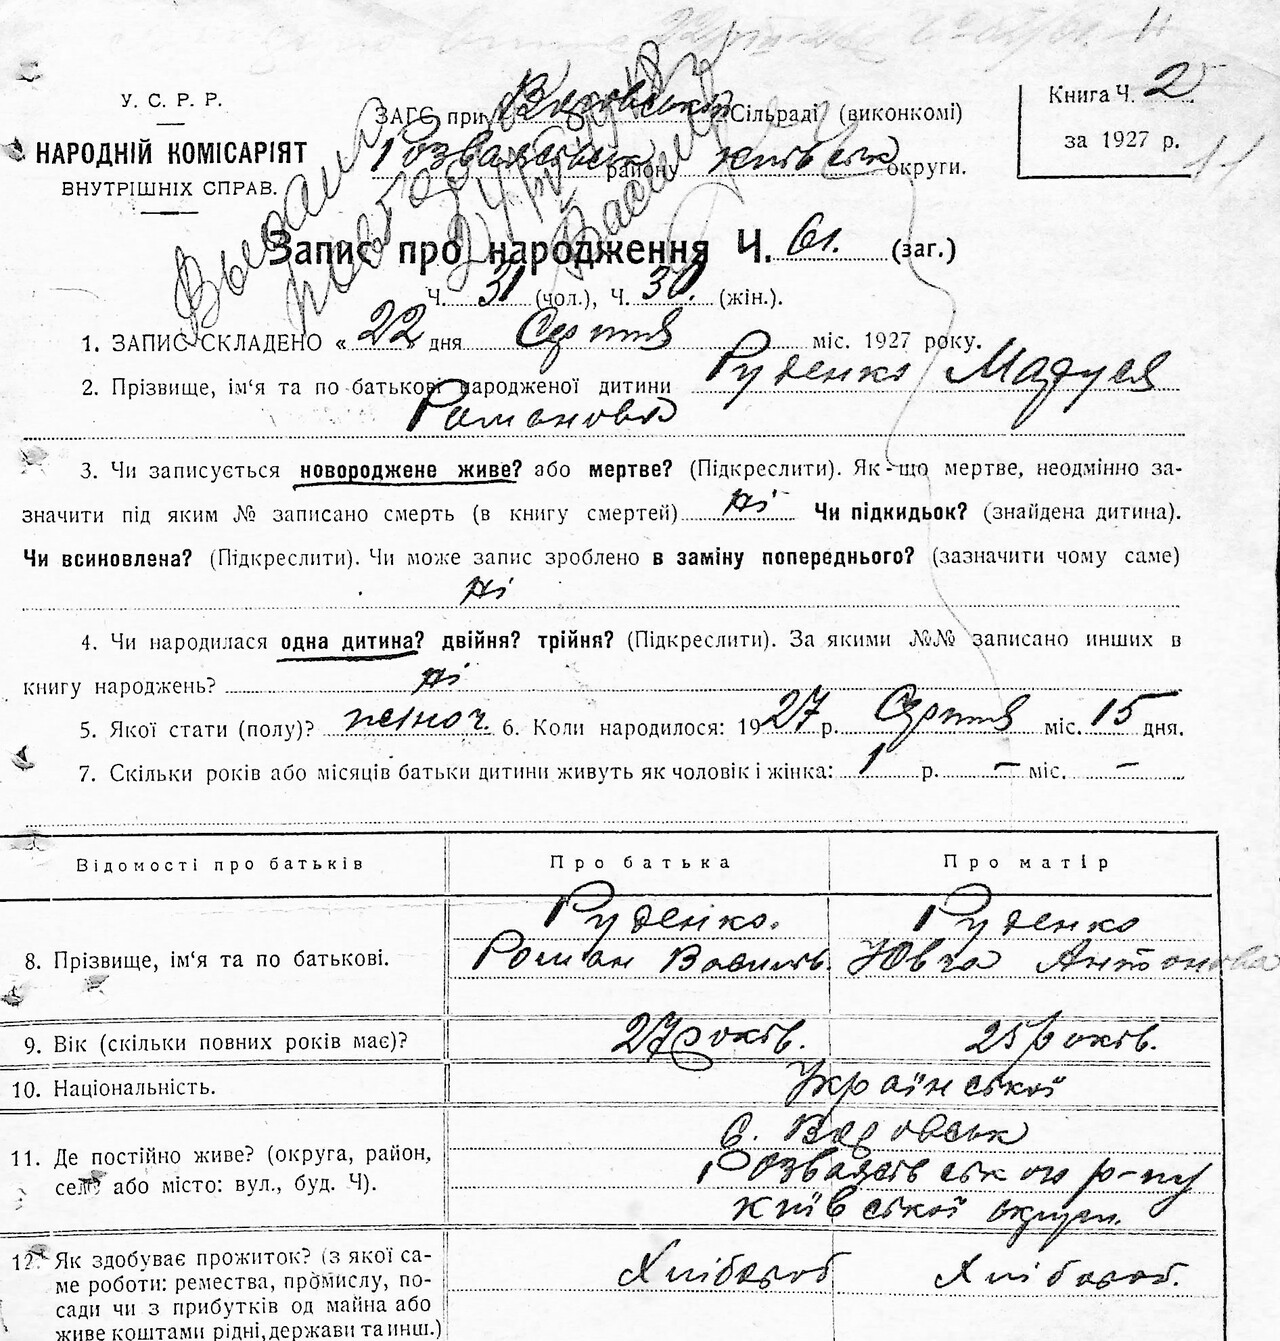 У. С. Р. Р.
НАРОДНІЙ КОМІСАРІЯТ
ВНУТРІШНІХ СПРАВ.
ЗАГС при Сільраді (виконкомі)
Розважівськ району Київськ округи.
Книга Ч. 2
за 1927 р.
Запис про народження Ч. 61. (заг.)
Ч. 31 (чол.), Ч. 30. (жін.).
1. ЗАПИС СКЛАДЕНО « 22 » дня Серпня міс. 1927 року.
2. Прізвище, ім‘я та по батькові народженої дитини Руденко Маруся
Романовн
3. Чи записується новороджене живе? або мертве? (Підкреслити). Як-що мертве, неодмінно за-
значити під яким № записано смерть (в книгу смертей) ні Чи підкидьок? (знайдена дитина).
Чи всиновлена? (Підкреслити). Чи може запис зроблено в заміну попереднього? (зазначити чому саме)
ні
4. Чи народилася одна дитина? двійня? трійня? (Підкреслити). За якими №№ записано инших в
книгу народжень? ні
5. Якої стати (полу)? жіноч. 6. Коли народилося: 1927 р. Серпня міс. 15 дня.
7. Скільки років або місяців батьки дитини живуть як чоловік і жінка: 1 р. – міс. –
Відомості про батьків Про батька Про матір
8. Прізвище, ім‘я та по батькові. Руденко. Руденко
Роман Василів. Антонова
9. Вік (скільки повних років має)? 27 років. 25 років.
10. Національність. Української
11. Де постійно живе? (округа, район,
село або місто: вул., буд. Ч). с.
Розважівського р-ну
Київської округи.
12. Як здобуває прожиток? (з якої са-
ме роботи: ремества, промислу, по-
сади чи з прибутків од майна або
живе коштами рідні, держави та инш.) Хлібороб Хлібороб.